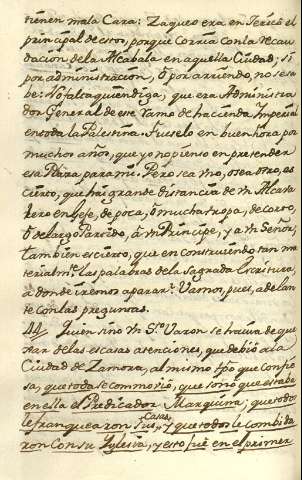 tienen mala Cara: Zaqueo era en Jericò el
principal de estos, porque corria con la recau
dacion de la Alcabala en aquella Ciudad; si
por administracion, ò por arriendo, no se sa
be: No falta quien diga, que era Administra
dor General de este ramo de hacienda Imperial
en toda la Palestina. Fueselo en buen hora por
muchos años, que yo no pienso en pretender
esa Plaza para mi. Pero sea uno, ò sea otro, es
cierto, que hai grande distancia de un Alcava
lero en Gefe, de poca, ò mucha tropa, de corto,
ò de largo Partido, à un Principe, y a un Señor;
tambien es cierto, que en construiendo tan ma
terialm.te las palabras de la Sagrada Escritura,
à donde iremos à parar?. Vamos, pues, adelan
te con las preguntas.
44// Quien sino un S.or Varon se havia de que
xar de las escasas atenciones, que debiò a la
Ciudad de Zamora, al mismo tpō que confie
sa, que toda se commoviò, que supò que estaba
en ella el Predicador Marquina; que todos
le franquearon sus Casas, y que todos le combida
ron con su Iglesia, y esto fuè en el primer